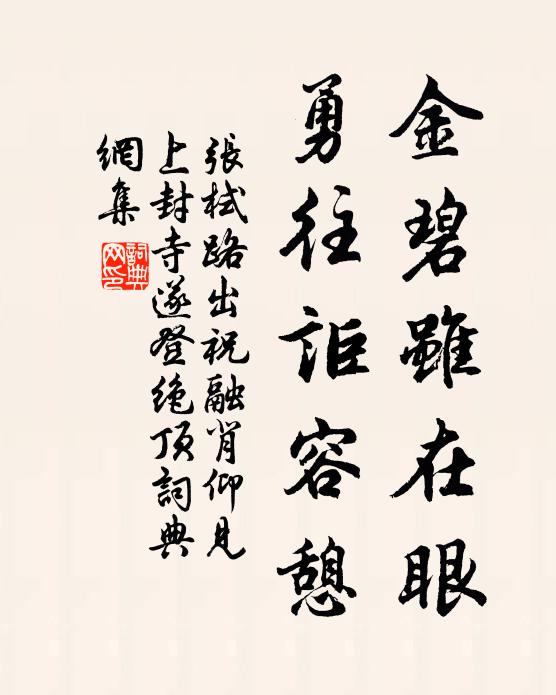 金碧雖在眼
勇往詎容憩
張栻路出祝融背仰見
上封寺遂登絶頂詞典
網集
詞典網印